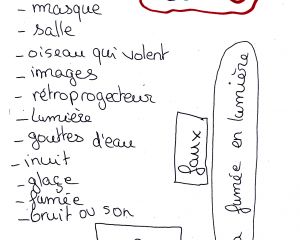 - masque
- salle
- oiseau qui volent
- images
- rétroprogecteur
- lumière
- gouttes d'eau
- inuit
- glaçe
- fumée
- bruit ou son
faux
fumée en lumière